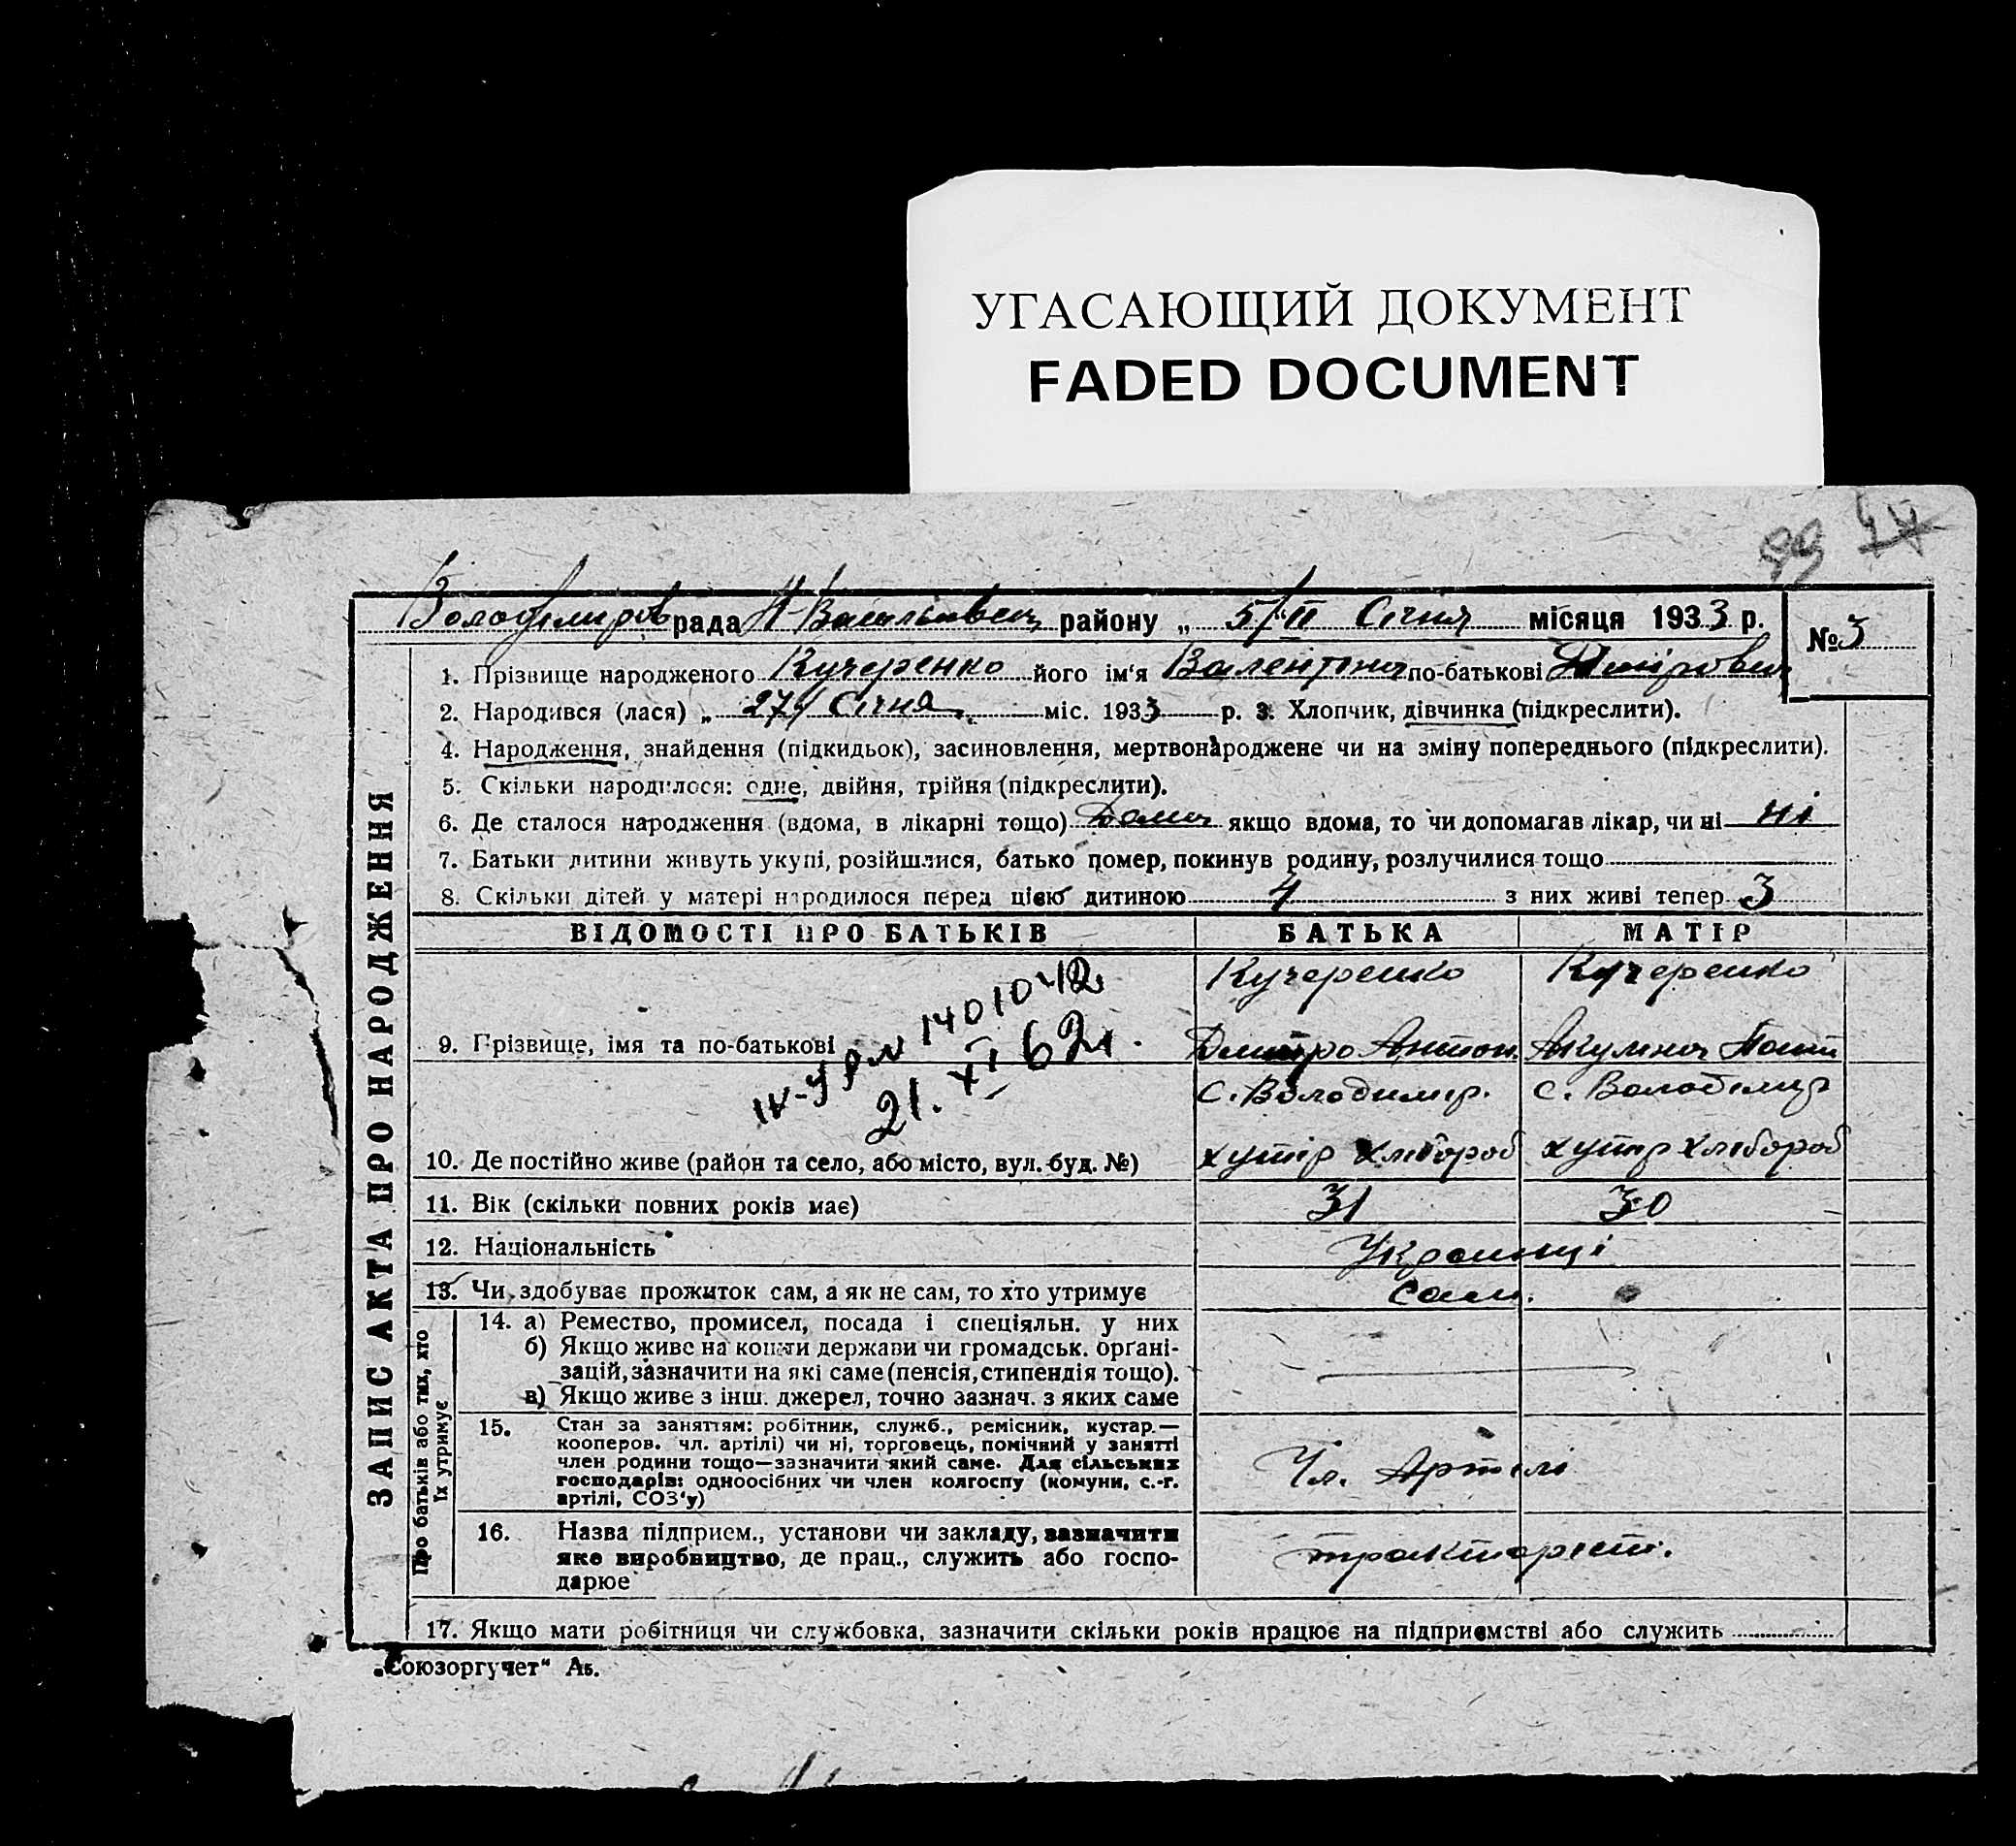 УГАСАЮЩИЙ ДОКУМЕНТ
FADED DOCUMENT
99 44
Володимиров рада Н-Васильковец району „ 5/II Січня місяця 1933 р. № 3
ЗАПИС АКТА ПРО НАРОДЖЕННЯ
1. Прізвище народженого Кучеренко його ім‘я Валентина по-батькові Дмитровна
2. Народився (лася) „ 27/ Січня міс. 1933 р. 3. Хлопчик, дівчинка (підкреслити).
4. Народження, знайдення (підкидьок), засиновлення, мертвонароджене чи на зміну попереднього (підкреслити).
5. Скільки народилося: одне, двійня, трійня (підкреслити).
6. Де сталося народження (вдома, в лікарні тощо) Дома якщо вдома, то чи допомагав лікар, чи ні ні
7. Батьки дитини живуть укупі, розійшлися, батько помер, покинув родину, розлучилися тощо
8. Скільки дітей у матері народилося перед цією дитиною 4 з них живі тепер 3
ВІДОМОСТІ ПРО БАТЬКІВ БАТЬКА МАТІР
Кучеренко Кучеренко
9. Прізвище, імя та по-батькові Дмитро Антон. Акулина
IV-УРЛ 1401042
21. XI 62г.
с. Володимир. с. Володимир
10. Де постійно живе (район та село, або місто, вул. буд. №) хутір Хлібороб хутір Хлібороб
11. Вік (скільки повних років має) 31 30
12. Національність Українці
13. Чи здобуває прожиток сам, а як не сам, то хто утримує сам.
Про батьків або тих, хто
їх утримує
14. а) Ремество, промисел, посада і спеціяльн. у них
б) Якщо живе на кошти держави чи громадськ. орґані-
зацій, зазначити на які саме (пенсія, стипендія тощо).
в) Якщо живе з інш. джерел, точно зазнач. з яких саме
15. Стан за заняттям: робітник, служб., ремісник, кустар.—
кооперов. чл. артілі) чи ні, торговець, помічний у занятті
член родини тощо—зазначити який саме. Для сільських
господарів: одноосібних чи член колгоспу (комуни, с.-г.
артілі, СОЗ‘у)
Чл. Артілі
16. Назва підприєм., установи чи закладу, зазначити
яке виробництво, де прац., служить або госпо-
дарює
тракторист.
17. Якщо мати робітниця чи службовка, зазначити скільки років працює на підприємстві або служить
„Союзоргучет“ Аь.